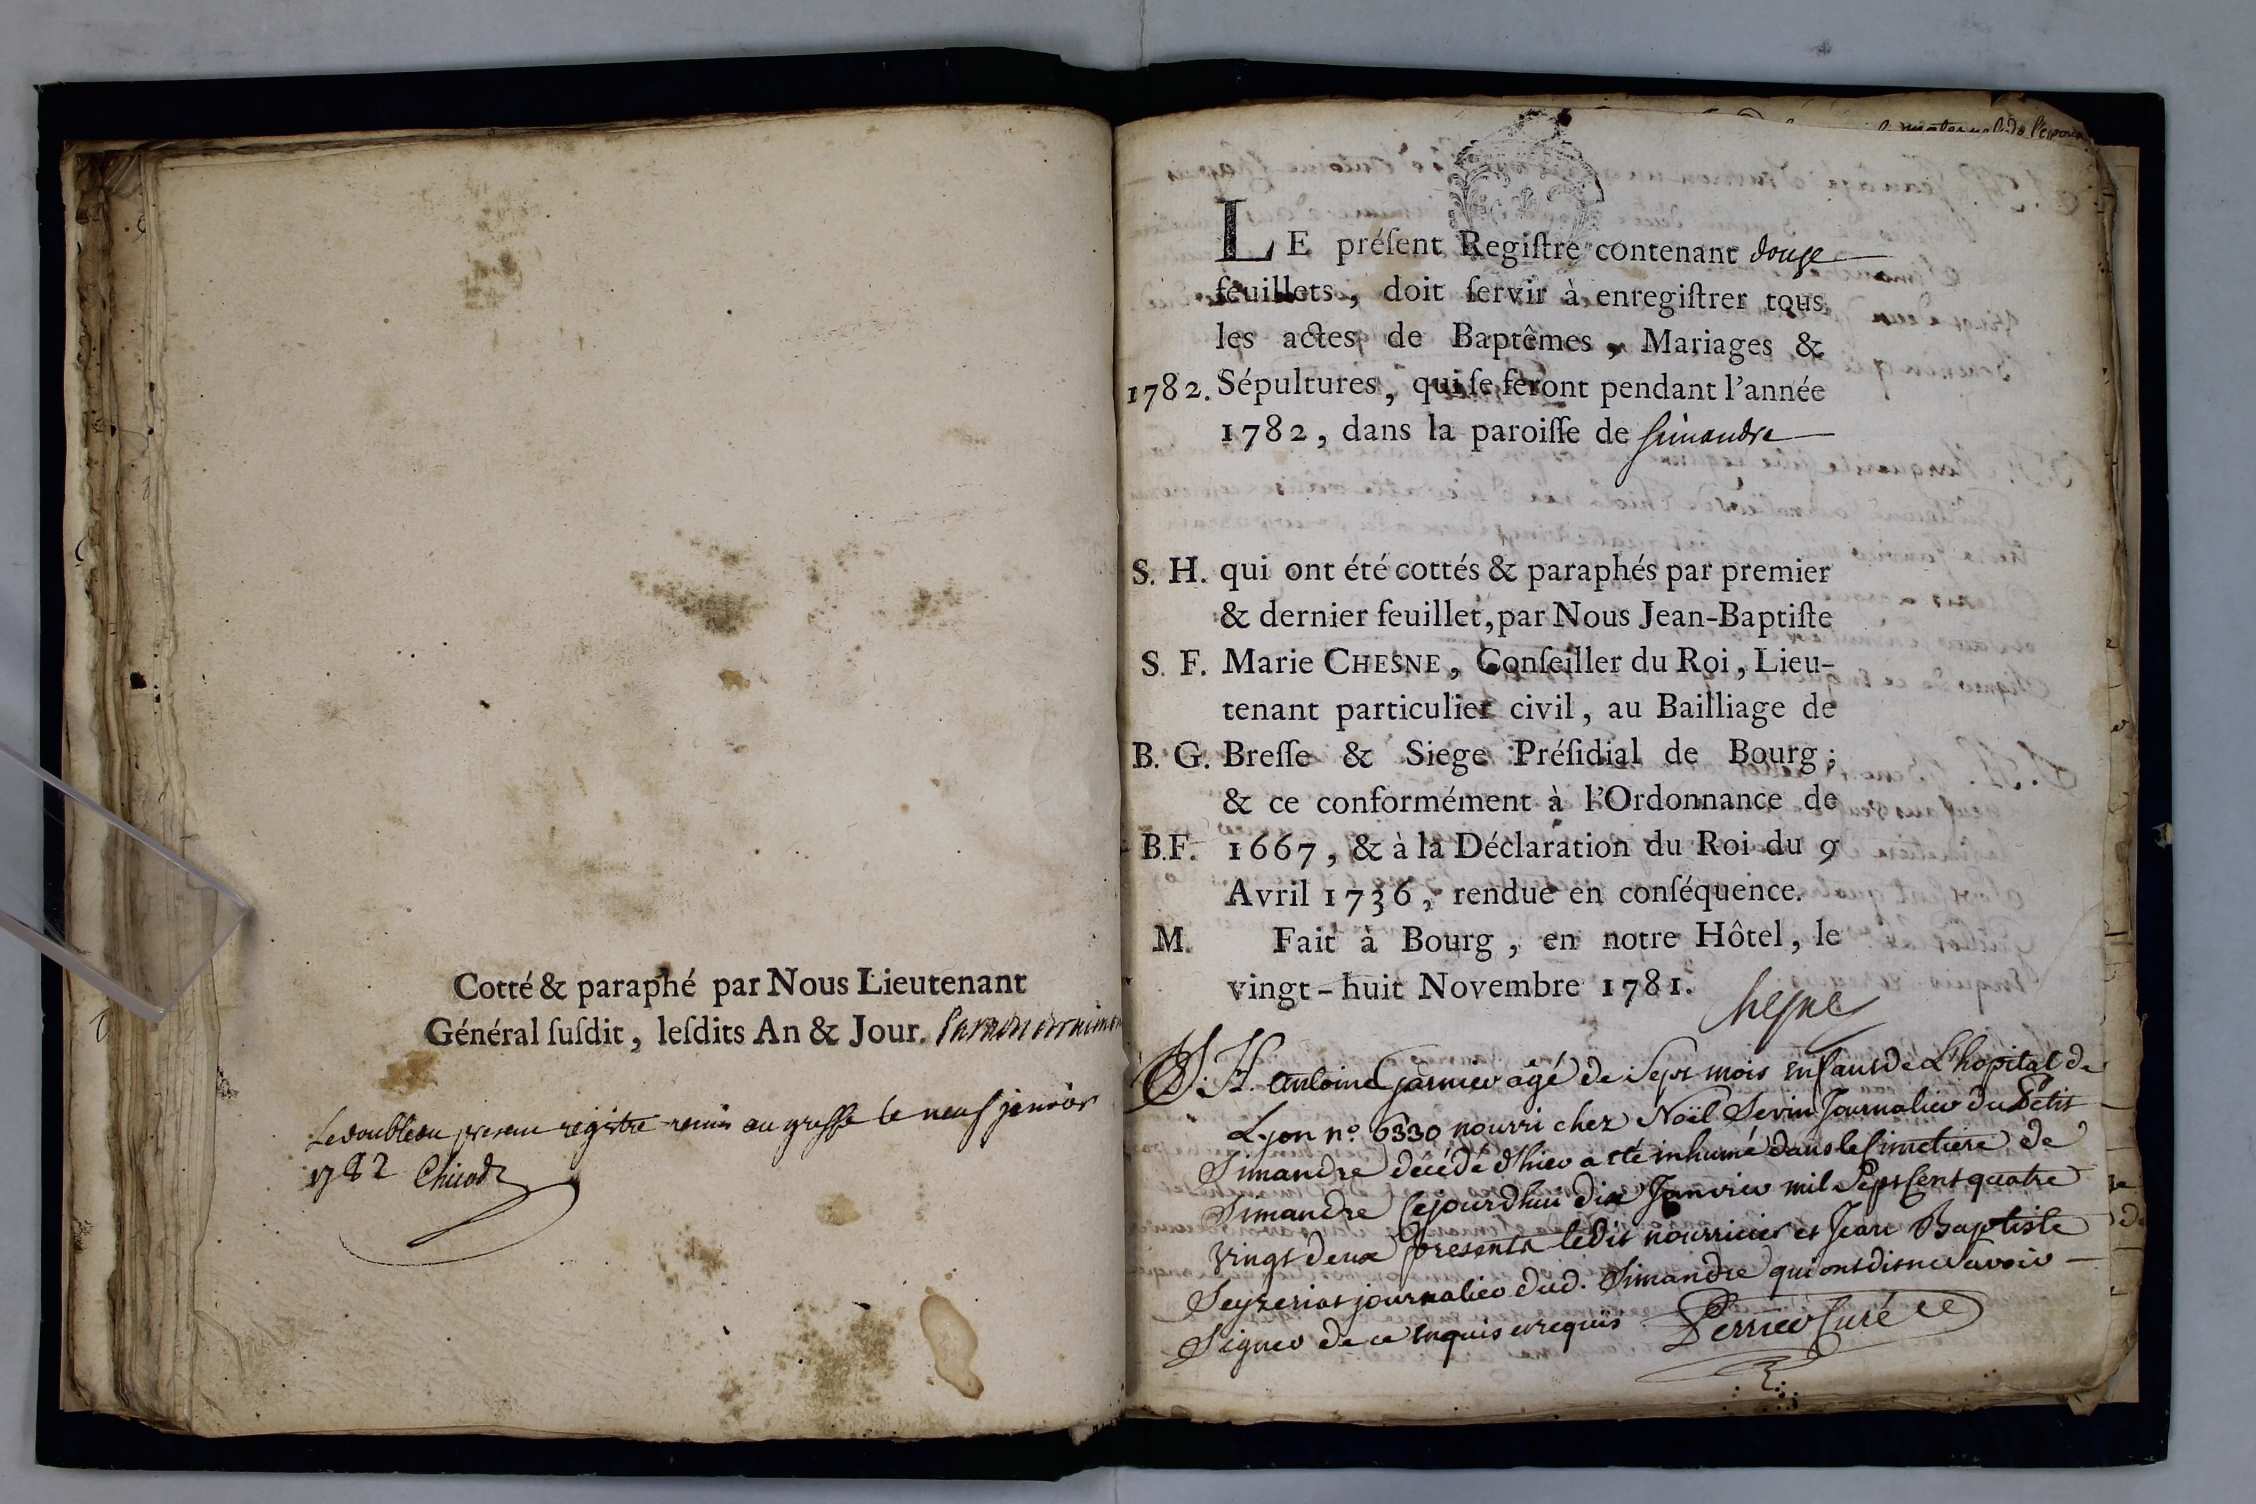 Cotté & paraphé par Nous Lieutenant
Général ſuſdit, leſdits An & Jour.
Le double du present registre remis au greffe le neuf janvier
1782 Chicod
LE préſent Regiſtre contenant douze
feuillets, doit ſervir à enregiſtrer tous
les actes de Baptêmes, Mariages &
1782. Sépultures, qui ſe feront pendant l'année
1782, dans la paroiſſe de Simandre
S. H. qui ont été cottés & paraphés par premier
& dernier feuillet, par Nous Jean-Baptiſte
S. F. Marie CHESNE, Conſeiller du Roi, Lieu-
tenant particulier civil, au Bailliage de
B. G. Breſſe & Siege Préſidial de Bourg;
& ce conformément à l'Ordonnance de
B.F. 1667, & à la Déclaration du Roi du 9
Avril 1736, rendue en conſéquence.
M. Fait à Bourg, en notre Hôtel, le
vingt-huit Novembre 1781.
Chesne
S. H. Antoine Garnier agé de Sept mois enfant de L'hopital de
Lyon n.º 6330 nourri chez Noël Sevin Journalier du Petit
Simandre décédé d'hier a été inhumé dans le Cimetiere de
Simandre Cejourdhui dix Janvier mil Sept Cent quatre
vingt deux presents ledit nourricier et Jean Baptiste
Seyzeriat journalier dud. Simandre qui ont dit ne savoir
Signer de ce enquis et requis Perrier Curé